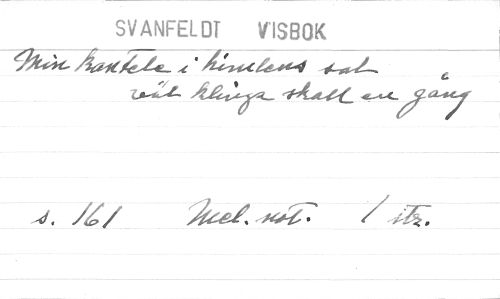 SVANFELDT VISBOK
Min kantele i himlens sal
väl klinga skall en gång
s. 161 Mel. not. 1 str.